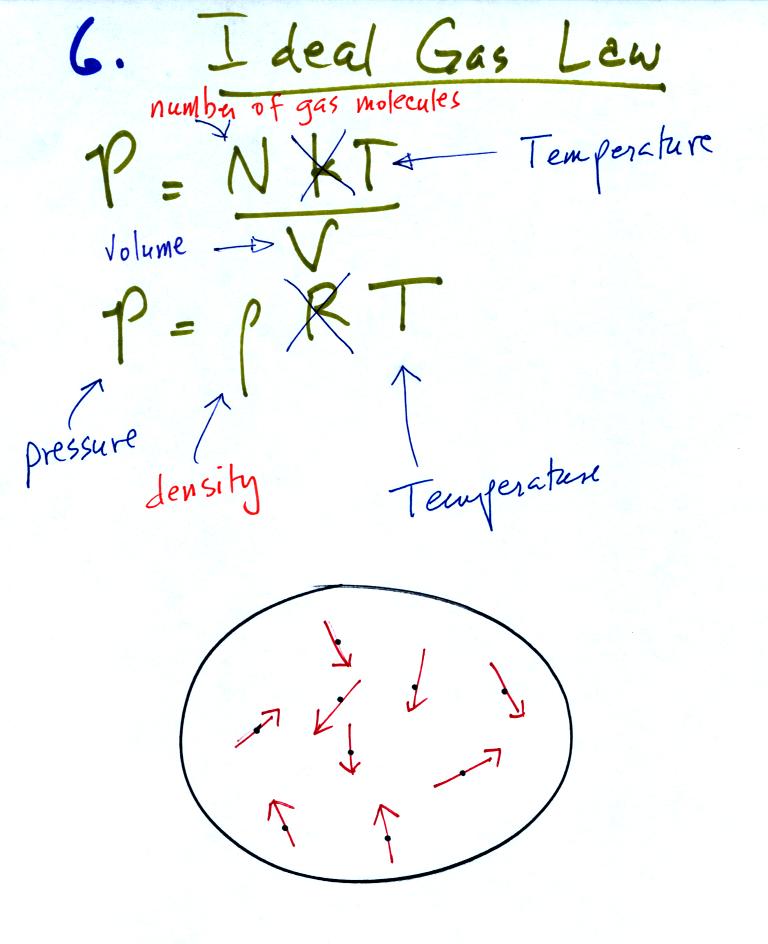 6. Ideal Gas Law
number of gas molecules
P = N k T
Temperature
Volume
V
P = ρ R T
pressure
density
Temperature